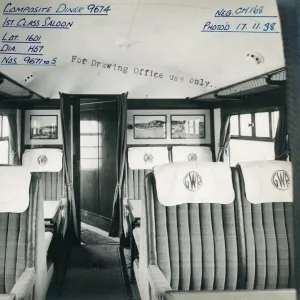 COMPOSITE DINER 9674
1ST CLASS SALOON
LOT. 1601
DIA. H57
NOS. 9671 to 5
NEG. CH168
PHOTO'D 17.11.38
For Drawing Office use only...
GWR
GWR
GWR
GWR
GWR